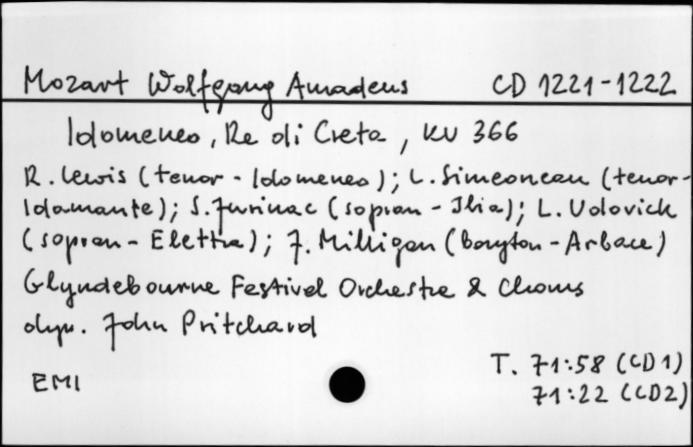 Mozart Wolfgang Amadeus CD 1221-1222
Idomeneo, Re di Creta, KV 366
R. Lewis (tenor - Idomeneo); L. Simeoneau (tenor-
Idamante); S. Jurinac (sopran - Ilia); L. Udovick
(sopran - Elettra); J. Milligan (baryton - Arbace)
Glyndebourne Festival Orchestra & Chorus
dyr. John Pritchard
EMI T. 71:58 (CD1)
71:22 (CD2)